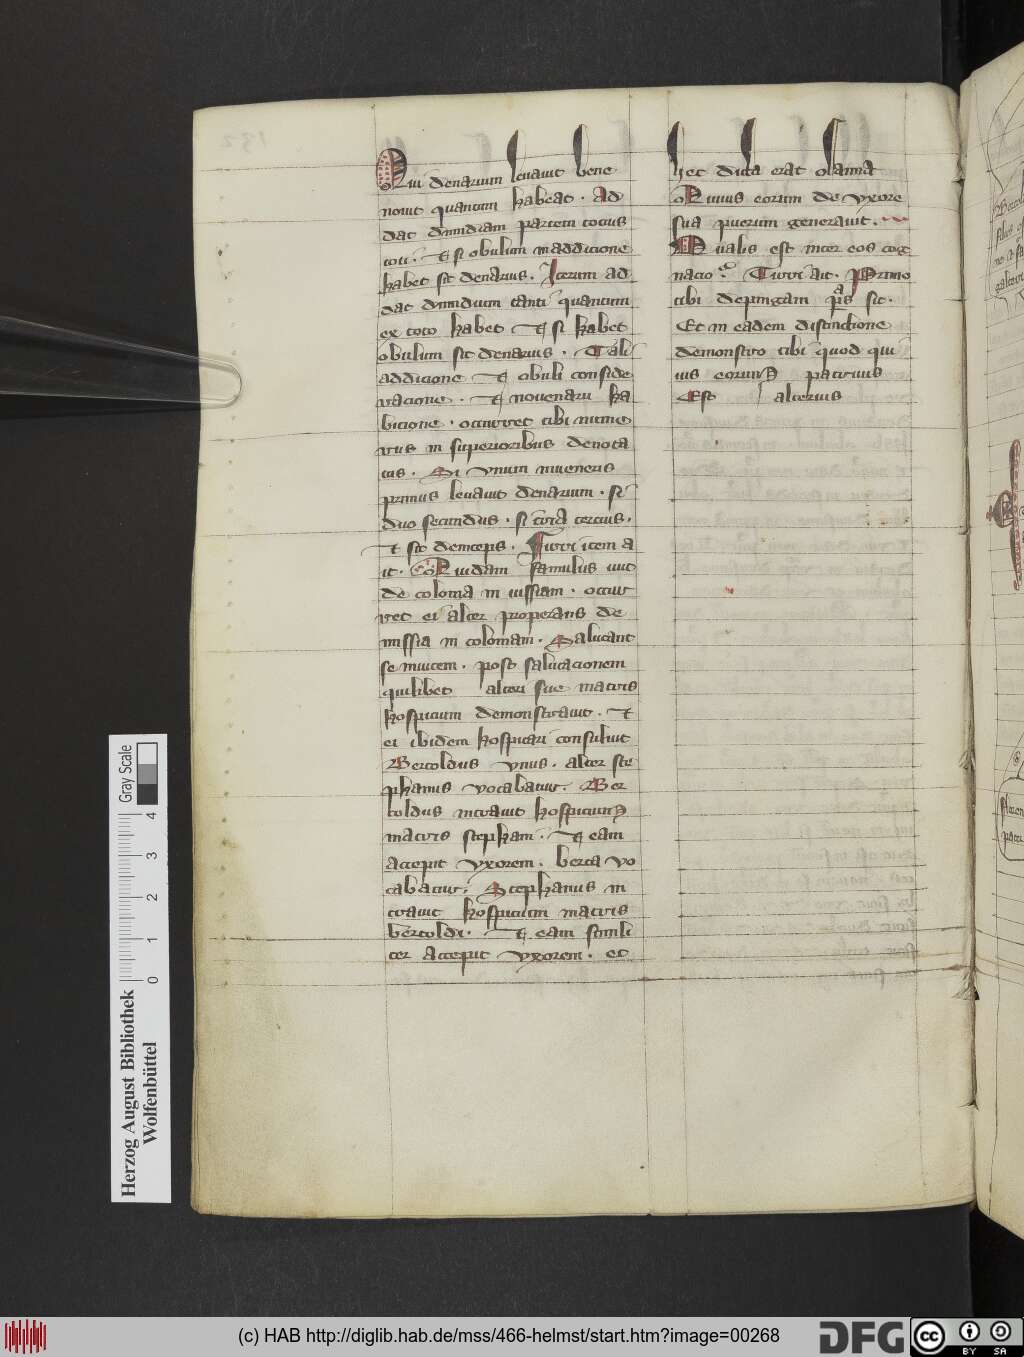 Qui denarium leuauit bene
nouit quantum habeat . Ad
dat dimidiam partem tocius
toti . Et si obulum in addicione
habet sit denarius . Iterum ad
dat dimidium tanti quantum
ex toto habet Et si habet
obulum sit denarius . Tali
addicione Et obuli conside
racione . Et nouenarii ha
bicione . occurret tibi nume
rus in superioribus denota
tus . Si vnum inueneris
primus leuauit denarium . si
duo secundus . si tria tercius .
Et sic deinceps . Tirri item a
it . Quidam famulus iuit
de colonia in
ret ei alter properans de
in coloniam . Salutant
se inuicem . post salutacionem
quilibet alteri sue matris
hospicium demonstrauit . Et
ei ibidem hospitari consuluit
Bertoldus vnus . alter ste
phanus vocabatur . Ber
toldus intrauit hospicium
matris stephani . Et eam
accepit vxorem . berta vo
cabatur . Stephanus in
trauit hospicium matris
bertoldi . Et eam simili
ter accepit vxorem . et
hec dicta erat Osanna
Quiuis eorum de vxore
sua puerum generauit .
Qualis est inter eos cog
nacio . Tirri ait . Primo
tibi depingam sit .
Et in eadem distinctione
demonstro tibi quod qui
uis eorum patruus
Est alterius
Herzog August Bibliothek
Wolfenbüttel
0 1 2 3 4
Gray Scale
(c) HAB http://diglib.hab.de/mss/466-helmst/start.htm?image=00268
DFG
cc
BY SA